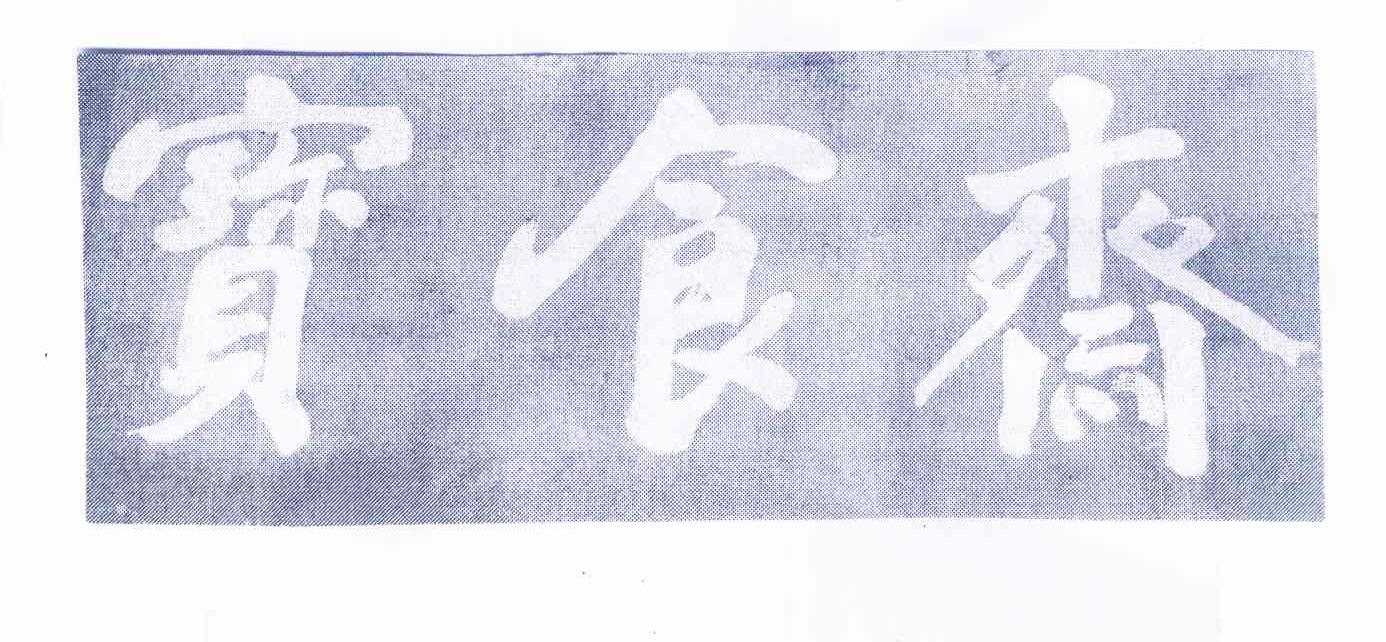 寶食齋